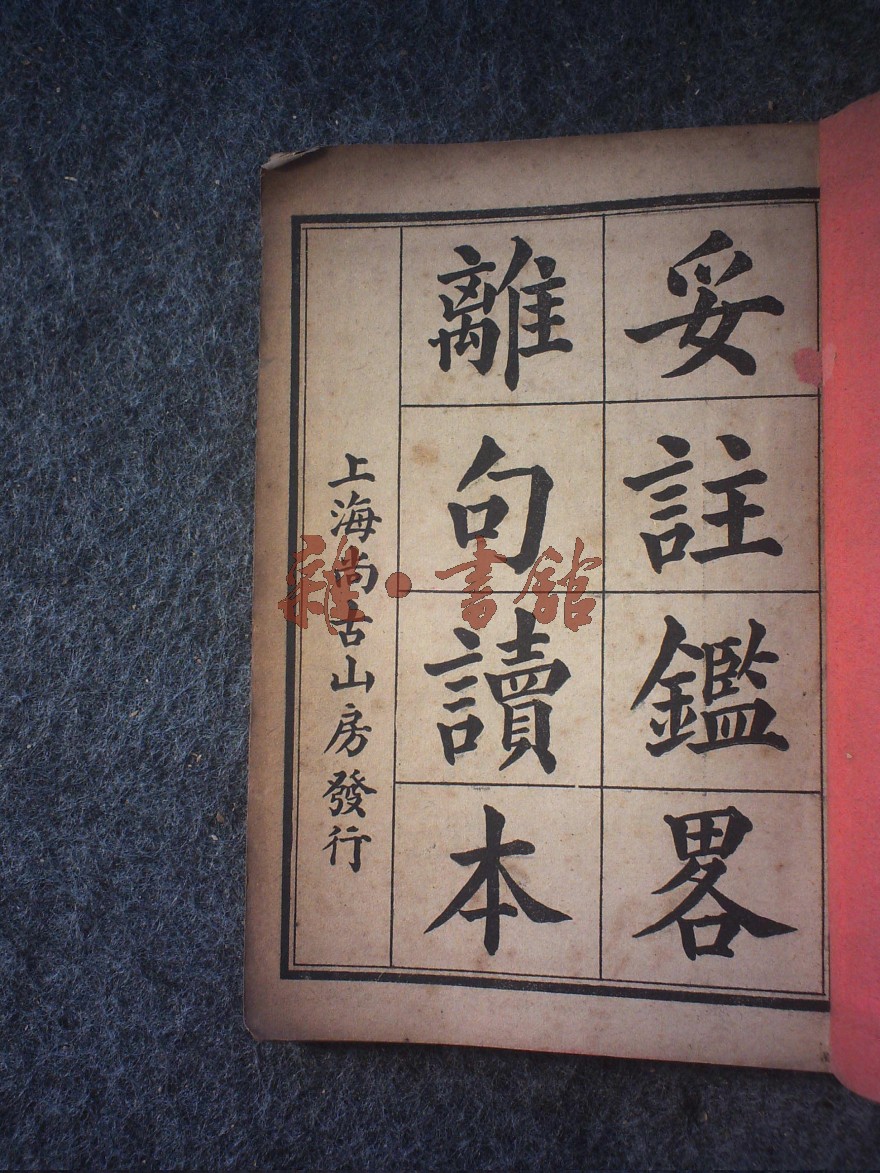 妥註鑑畧
離句讀本
上海尚古山房發行
雜·書館